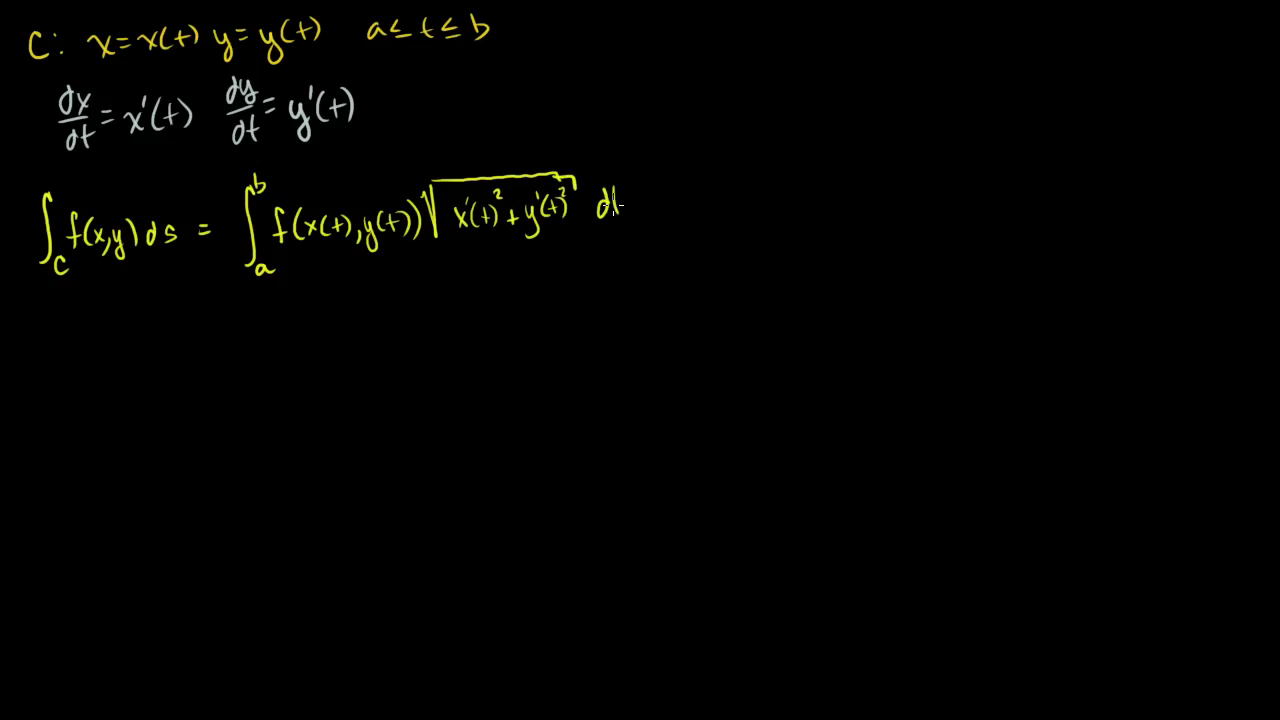 C: x = x(t) y = y(t) a ≤ t ≤ b
dx/dt = x'(t) dy/dt = y'(t)
∫_C f(x,y) ds = ∫_a^b f(x(t), y(t)) √(x'(t)² + y'(t)²) d